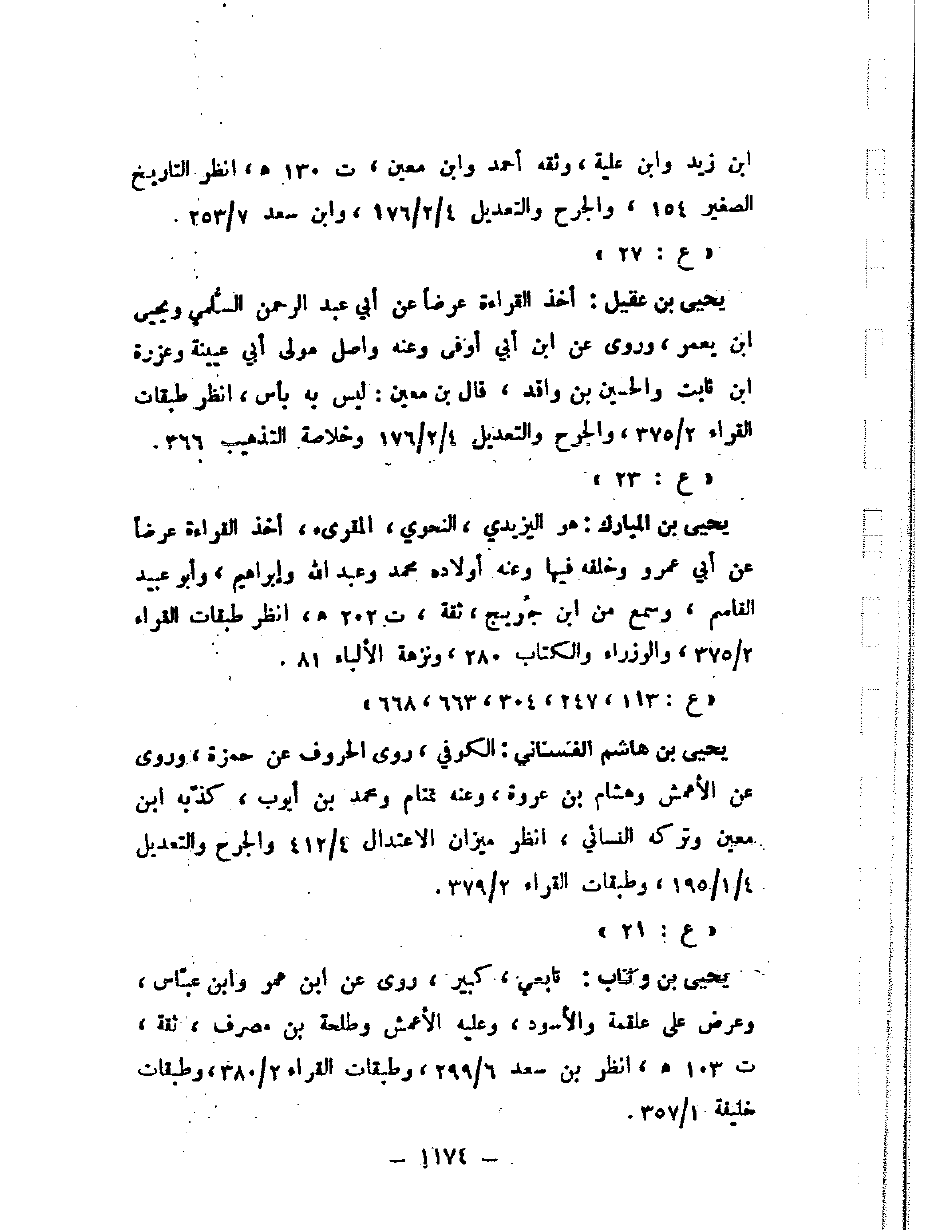 ابن زيد وابن علية ، وثقه أحمد وابن معين ، ت ١٣٠ ه ، انظر التاريخ
الصغير ١٥٤ ، والجرح والتعديل ١٧٦/٢/٤ ، وابن سعد ٢٥٣/٧ .
« ع : ٢٧ »
يحيى بن عقيل : أخذ القراءة عرضاً عن أبي عبد الرحمن السُّلمي ويحيى
ابن يعمر ، وروى عن ابن أبي أوفى وعنه واصل مولى أبي عيينة وعزرة
ابن ثابت والحسين بن واقد ، قال بن معين : ليس به بأس ، انظر طبقات
القراء ٣٧٥/٢ ، والجرح والتعديل ١٧٦/٢/٤ وخلاصة التذهيب ٣٦٦ .
« ع : ٢٣ »
يحيى بن المبارك : هو اليزيدي ، النحوي ، المقرىء ، أخذ القراءة عرضاً
عن أبي عمرو وخلفه فيها وعنه أولاده محمد وعبد الله وإبراهيم ، وأبو عبيد
القاسم ، وسمع من ابن جُريج ، ثقة ، ت ٢٠٢ ه ، انظر طبقات القراء
٣٧٥/٢ ، والوزراء والكتاب ٢٨٠ ، ونزهة الألباء ٨١ .
« ع : ١١٣ ، ٢٤٧ ، ٣٠٤ ، ٦٦٣ ، ٦٦٨ »
يحيى بن هاشم الغسّاني : الكوفي ، روى الحروف عن حمزة ، وروى
عن الأعمش وهشام بن عروة ، وعنه تمتام ومحمد بن أيوب ، كذّبه ابن
معين وتركه النسائي ، انظر ميزان الاعتدال ٤١٢/٤ والجرح والتعديل
١٩٥/١/٤ ، وطبقات القراء ٣٧٩/٢ .
« ع : ٢١ »
يحيى بن وثّاب : تابعي ، كبير ، روى عن ابن عمر وابن عبّاس ،
وعرض على علقمة والأسود ، وعليه الأعمش وطلحة بن مصرف ، ثقة ،
ت ١٠٣ ه ، انظر بن سعد ٢٩٩/٦ ، وطبقات القراء ٣٨٠/٢ ، وطبقات
خليفة ٣٥٧/١ .
— ١١٧٤ —